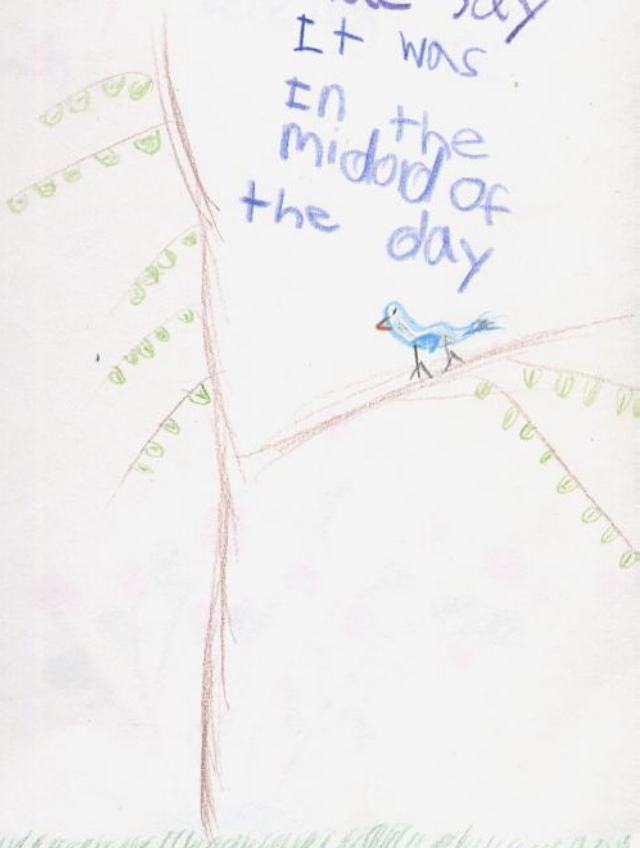 say
It was
In the
midod of
the day